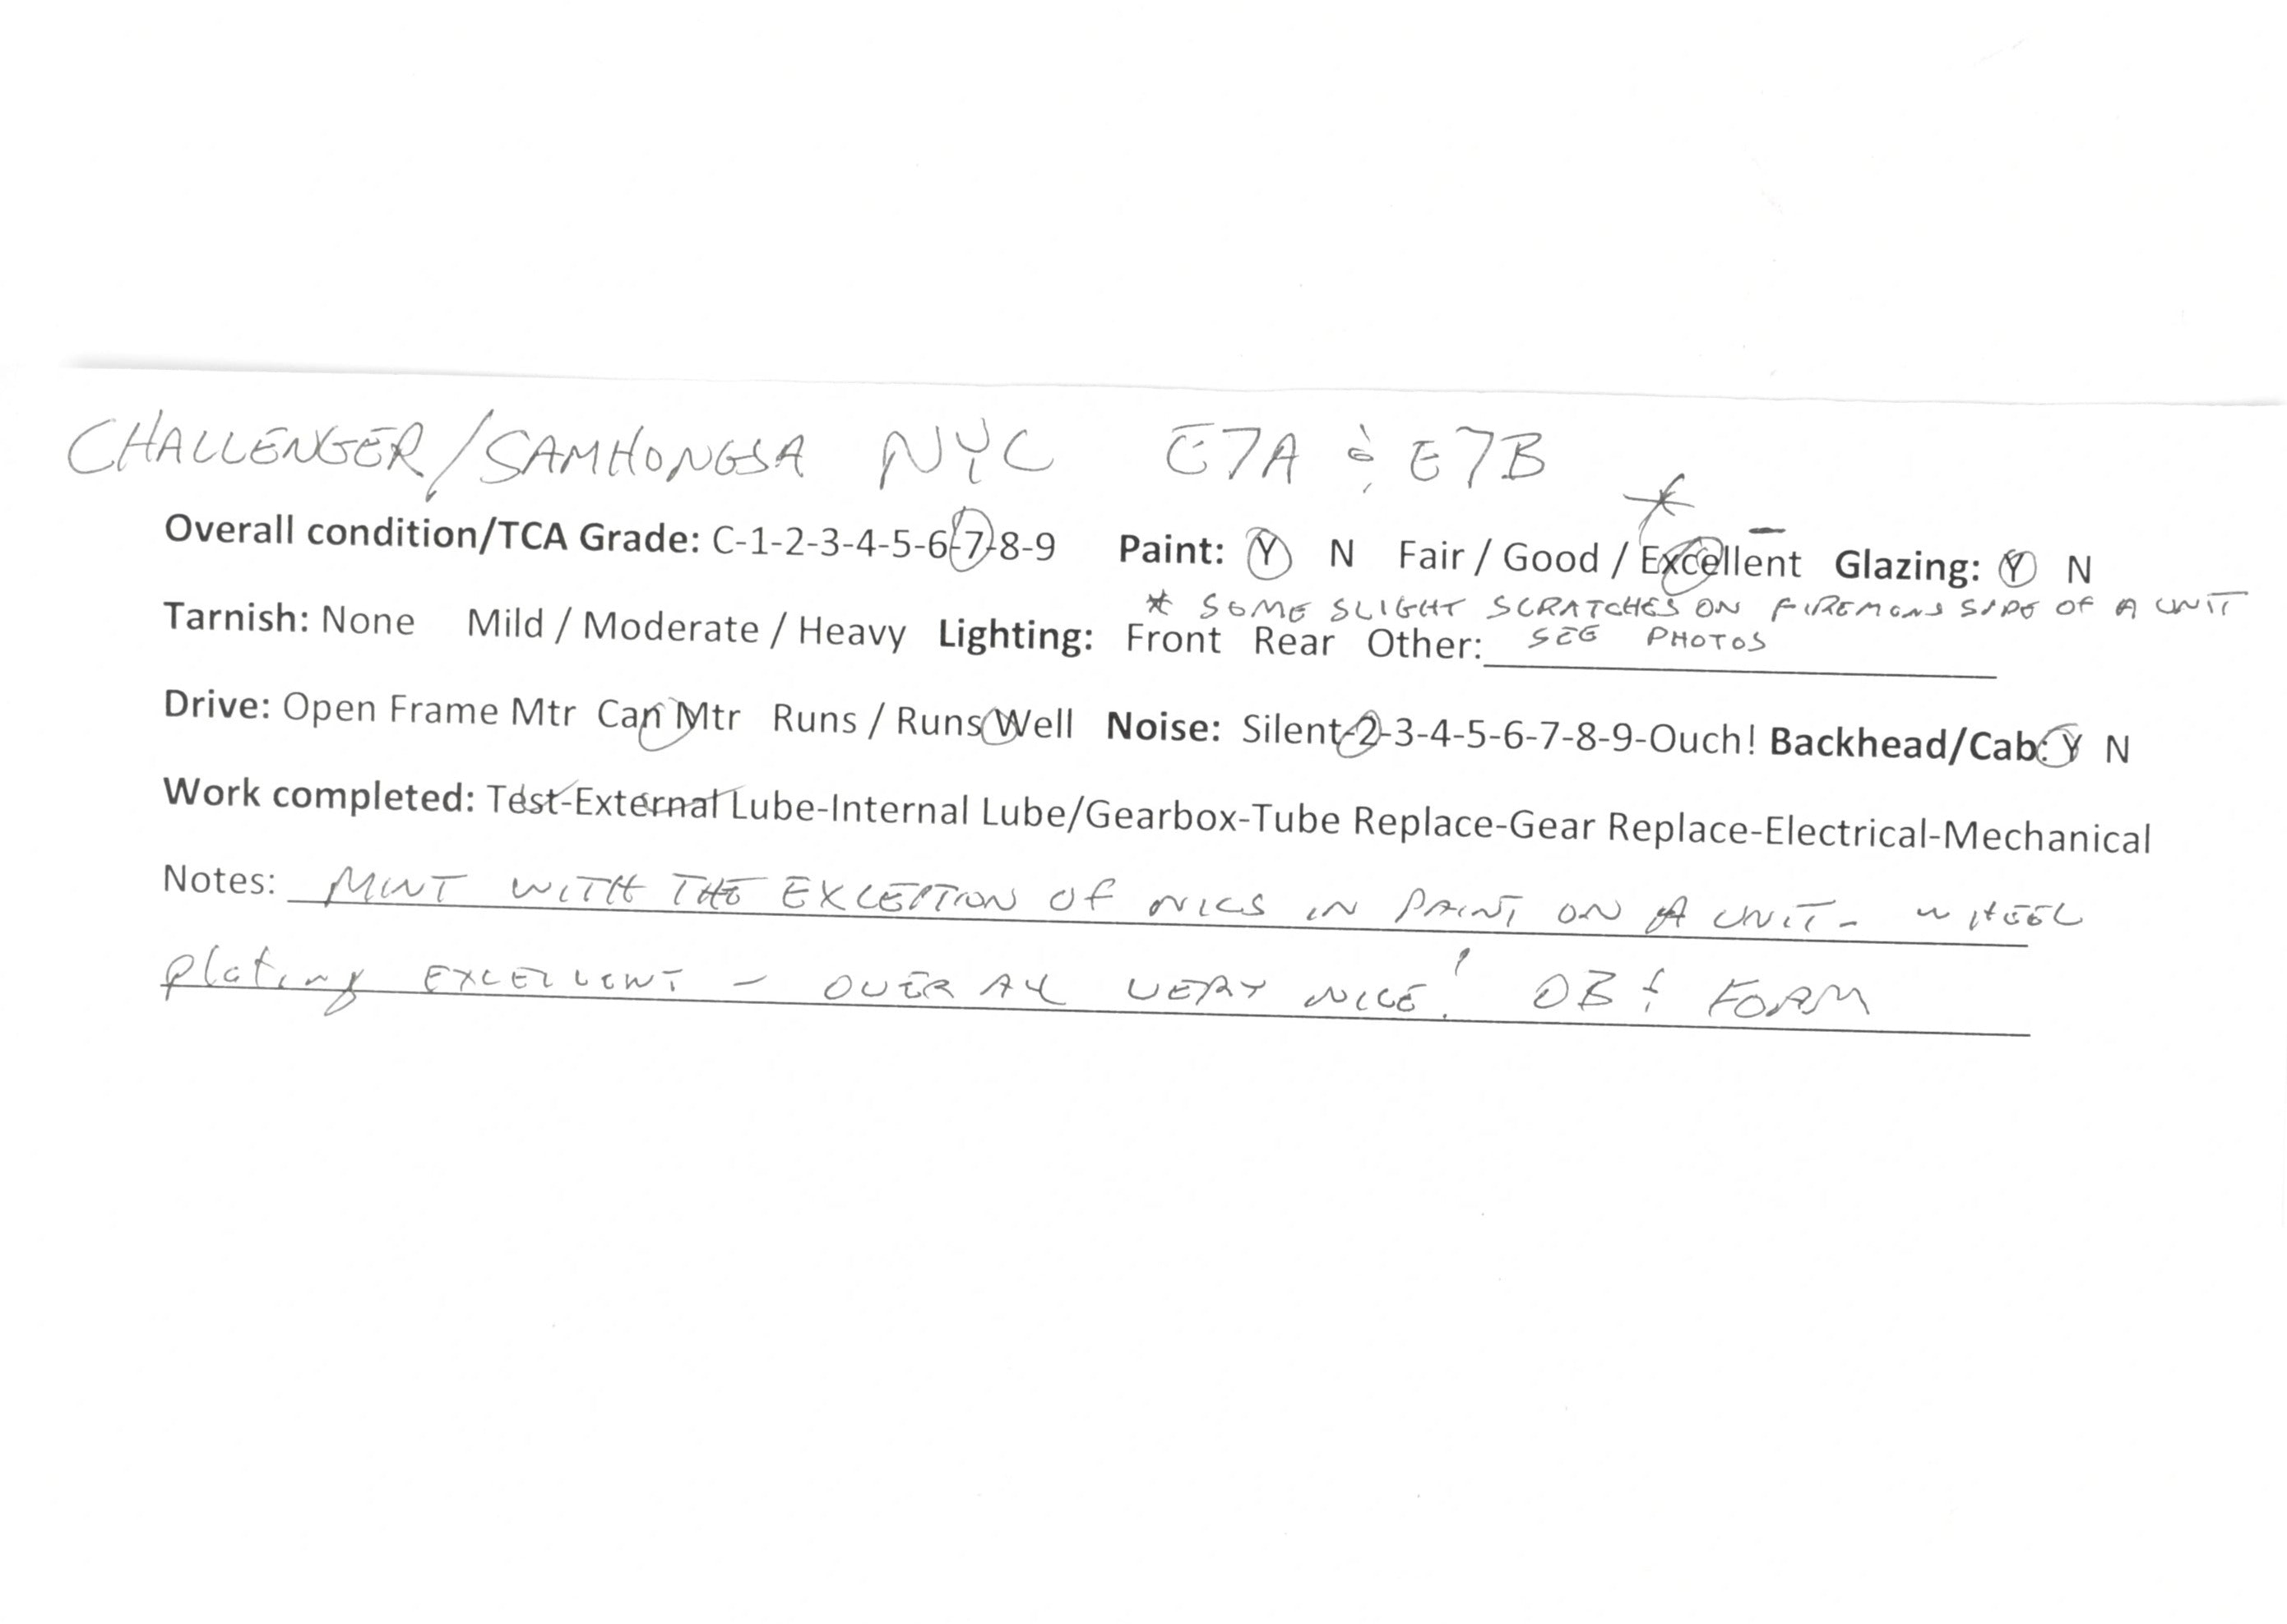 CHALLENGER/SAMHONGSA NYC E7A & E7B
*
Overall condition/TCA Grade: C-1-2-3-4-5-6-7-8-9 Paint: Y N Fair / Good / Excellent - Glazing: Y N
* SOME SLIGHT SCRATCHES ON FIREMANS SIDE OF A UNIT
Tarnish: None Mild / Moderate / Heavy Lighting: Front Rear Other: SEE PHOTOS
Drive: Open Frame Mtr Can Mtr Runs / Runs Well Noise: Silent-2-3-4-5-6-7-8-9-Ouch! Backhead/Cab: Y N
Work completed: Test-External Lube-Internal Lube/Gearbox-Tube Replace-Gear Replace-Electrical-Mechanical
Notes: MINT WITH THE EXCEPTION OF NICS IN PAINT ON A UNIT - WHEEL
plating EXCELLENT - OVERALL VERY NICE! OB & FORM